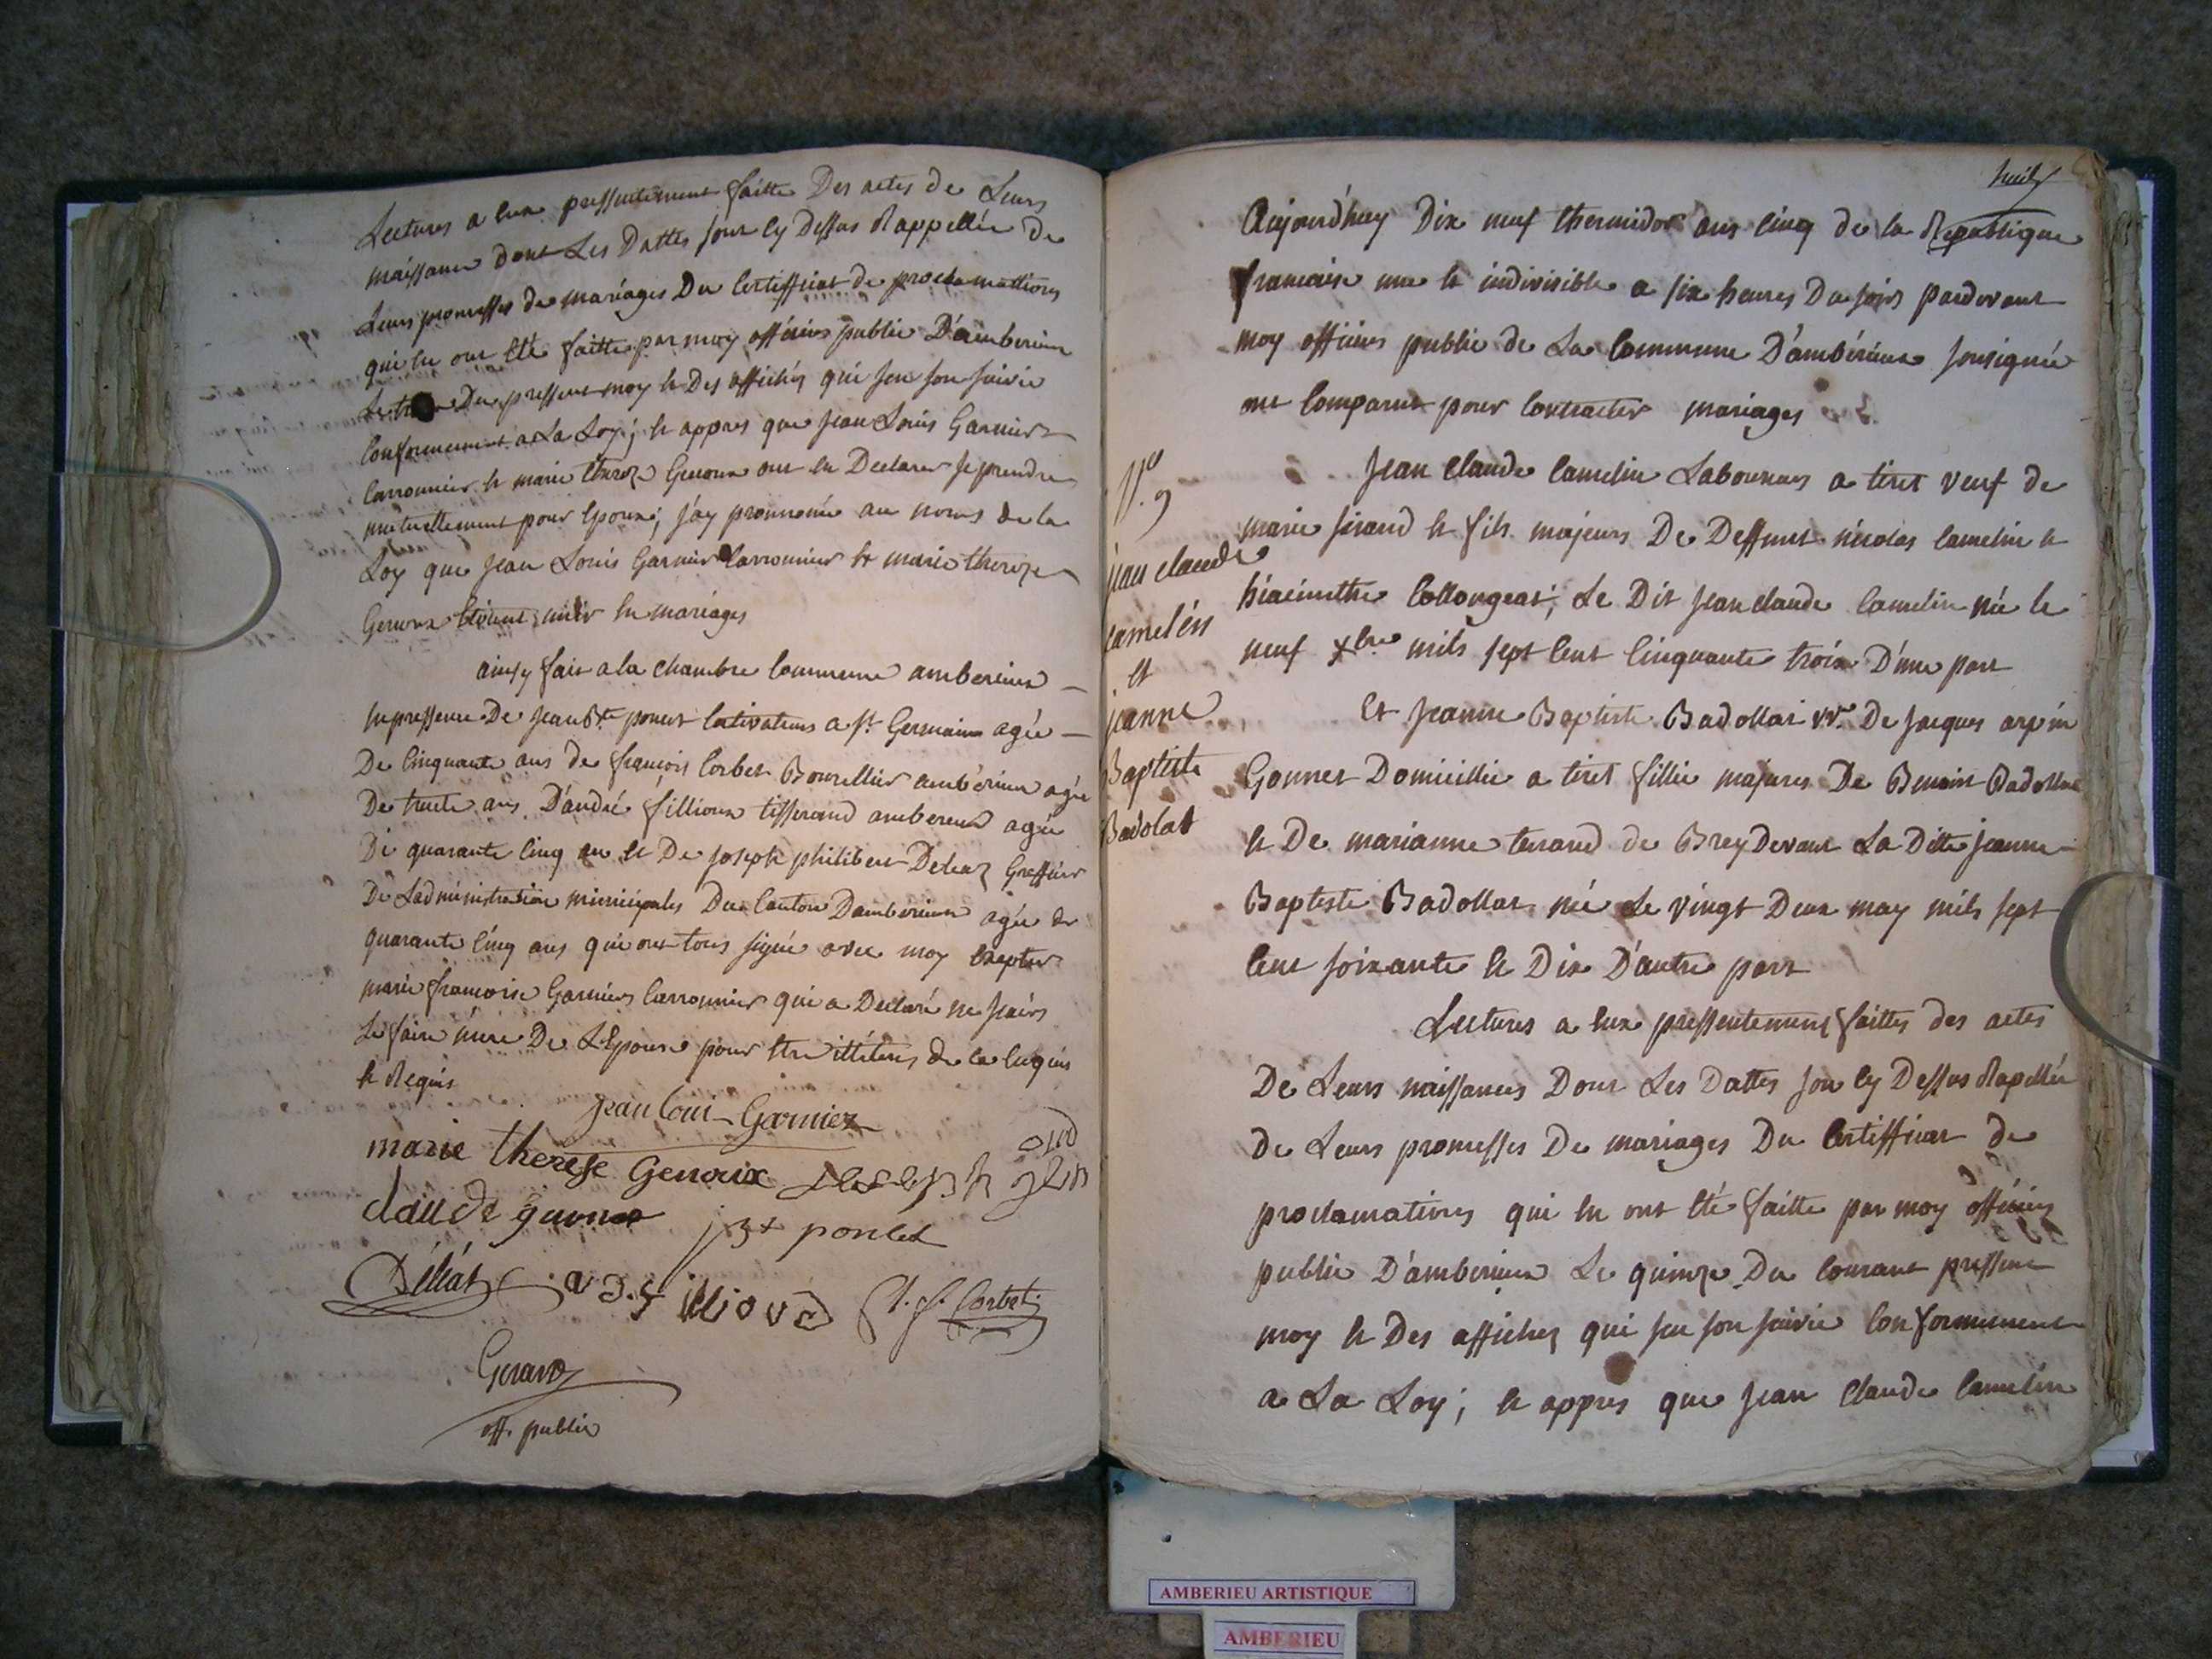 Lectures a eux pressentement faitte Des actes de Leurs
naissance dont Les Dattes sont cy Dessus Rappellée de
Leurs promesses de mariages Du Certifficat de proclamattions
qui en ont eté faitte par moy officier public D'amberieux
Du pressent moy et Des affichés qui sen son suivie
Conformement a La Loy; et appres que Jean Louis Garnier
Carronnier et marie thereze Genoux ont eu Declarer se prendre
mutuellement pour Epoux; j'ay pronnoncé au noms de la
Loy que Jean Louis Garnier Carronnier et marie thereze
Genoux Etoient unir en mariages
ainsy fait a la chambre Commune amberieux
en pressence De Jean Bte poncet Cultivateurs a St Germain agée
De Cinquante ans de françois Corbet Bourellier amberieux agée
De trente ans D'andré fillioux tisserand amberieux agée
De quarante Cinq an et De Joseph philibert Deleaz Greffier
De L'administration municipales Du Canton Damberieux agée de
quarante Cinq ans qui ont tous signée avec moy Exepter
marie francoise Garnier Carronnier qui a Declaré ne scavoir
Le faire mere De L'Epoux pour Etre illitéres de ce enquis
et Requis
Jean Loui Garnier
marie therese Genoux
claude genoux
jBt poncet
Déléat
fillioud
C. f. Corbet
Gerard
off. public
huit
Aujourd'huy Dix neuf thermidor ans Cinq de la Republique
francaise une et indivisible a six heures Du soirs pardevant
moy officiers public de La Commune D'ambérieux sousignée
ont Comparut pour Contracter mariages
N.o 9
jean claude
camelin
et
jeanne
Baptiste
Badolat
Jean Claude Camelin Laboureurs a tiret veuf de
marie sirand et fils majeurs De Deffunt nicolas Camelin et
hiacinthe Collongeat; Le Dit Jean claude Camelin née le
neuf xbre mils sept Cent Cinquante troix D'une part
Et Jeanne Baptiste Badollat vve De Jacques arpin
Gonnet Domicillié a tiret fillie majeures De Benoit Badollat
et De marianne terrand de Brey Devant La Ditte Jeanne
Baptiste Badollat née Le vingt Deux may mils sept
Cent soixante et Dix D'autre part
Lectures a eux pressentement faittes des actes
De Leurs naissances Dont Les Dattes son cy Dessus Rapellée
de Leurs promesses De mariages Du Certifficat de
proclamations qui en ont été faitte par moy officiers
public D'amberieux Le quinze Du Courant pressent
moy et Des affichez qui sen son suivie Conformement
a La Loy; et appres que Jean Claude Camelin
AMBERIEU ARTISTIQUE
AMBERIEU